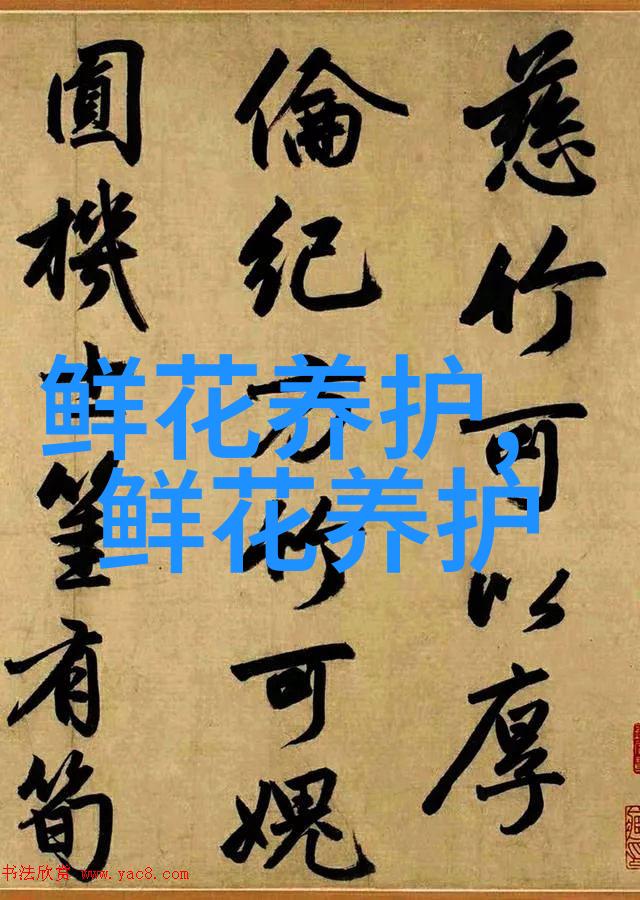 慈竹可以厚
倫紀方竹可媿
圓機筀有筍
鲜花养护,
鲜花养护
书法欣赏 www.yac8.com